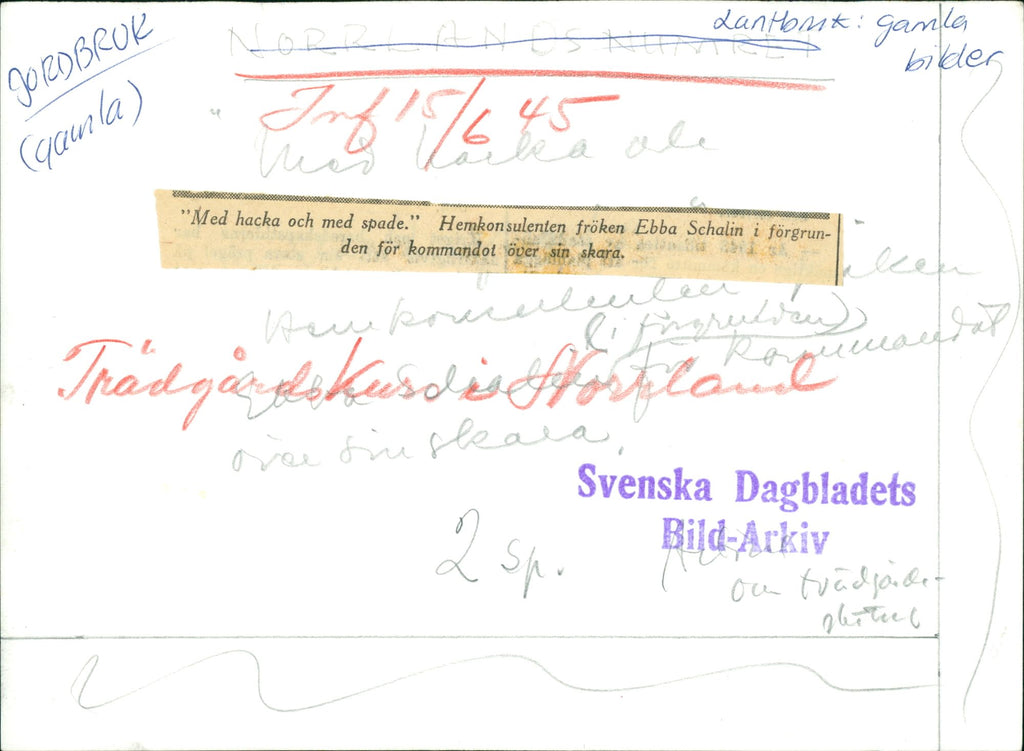 JORDBRUK
(gamla)
NORRLANDSNUMRET
Lantbruk: gamla
bilder
Inf 15/6 45
"Med hacka och
"Med hacka och med spade." Hemkonsulenten fröken Ebba Schalin i förgrun-
den för kommandot över sin skara.
fröken
Hemkonsulenten
(i förgrunden)
Ebba Schalin för kommandot
Trädgårdskurs i Norrland
över sin skara.
Svenska Dagbladets
Bild-Arkiv
2 sp.
om trädgårds-